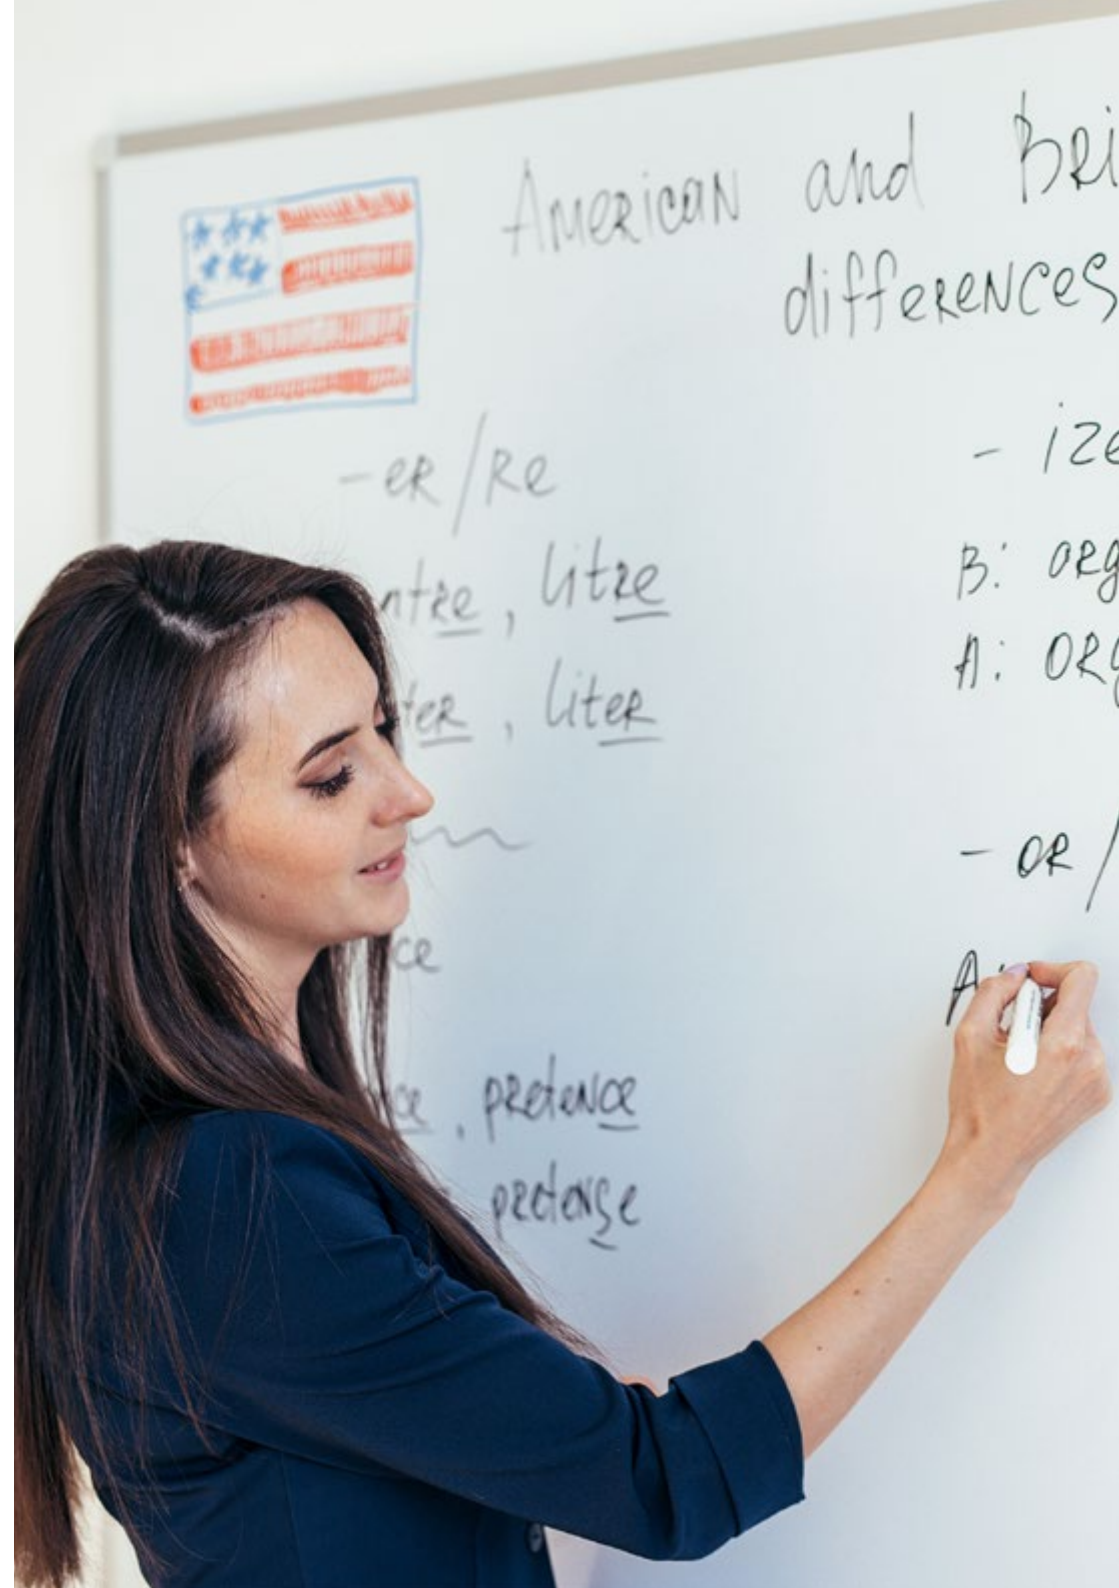 American and Bri
differences
-er/re
ntre, litre
ter, liter
ce
ce, pretence
pretense
- ize
B: org
A: org
- or /
A: